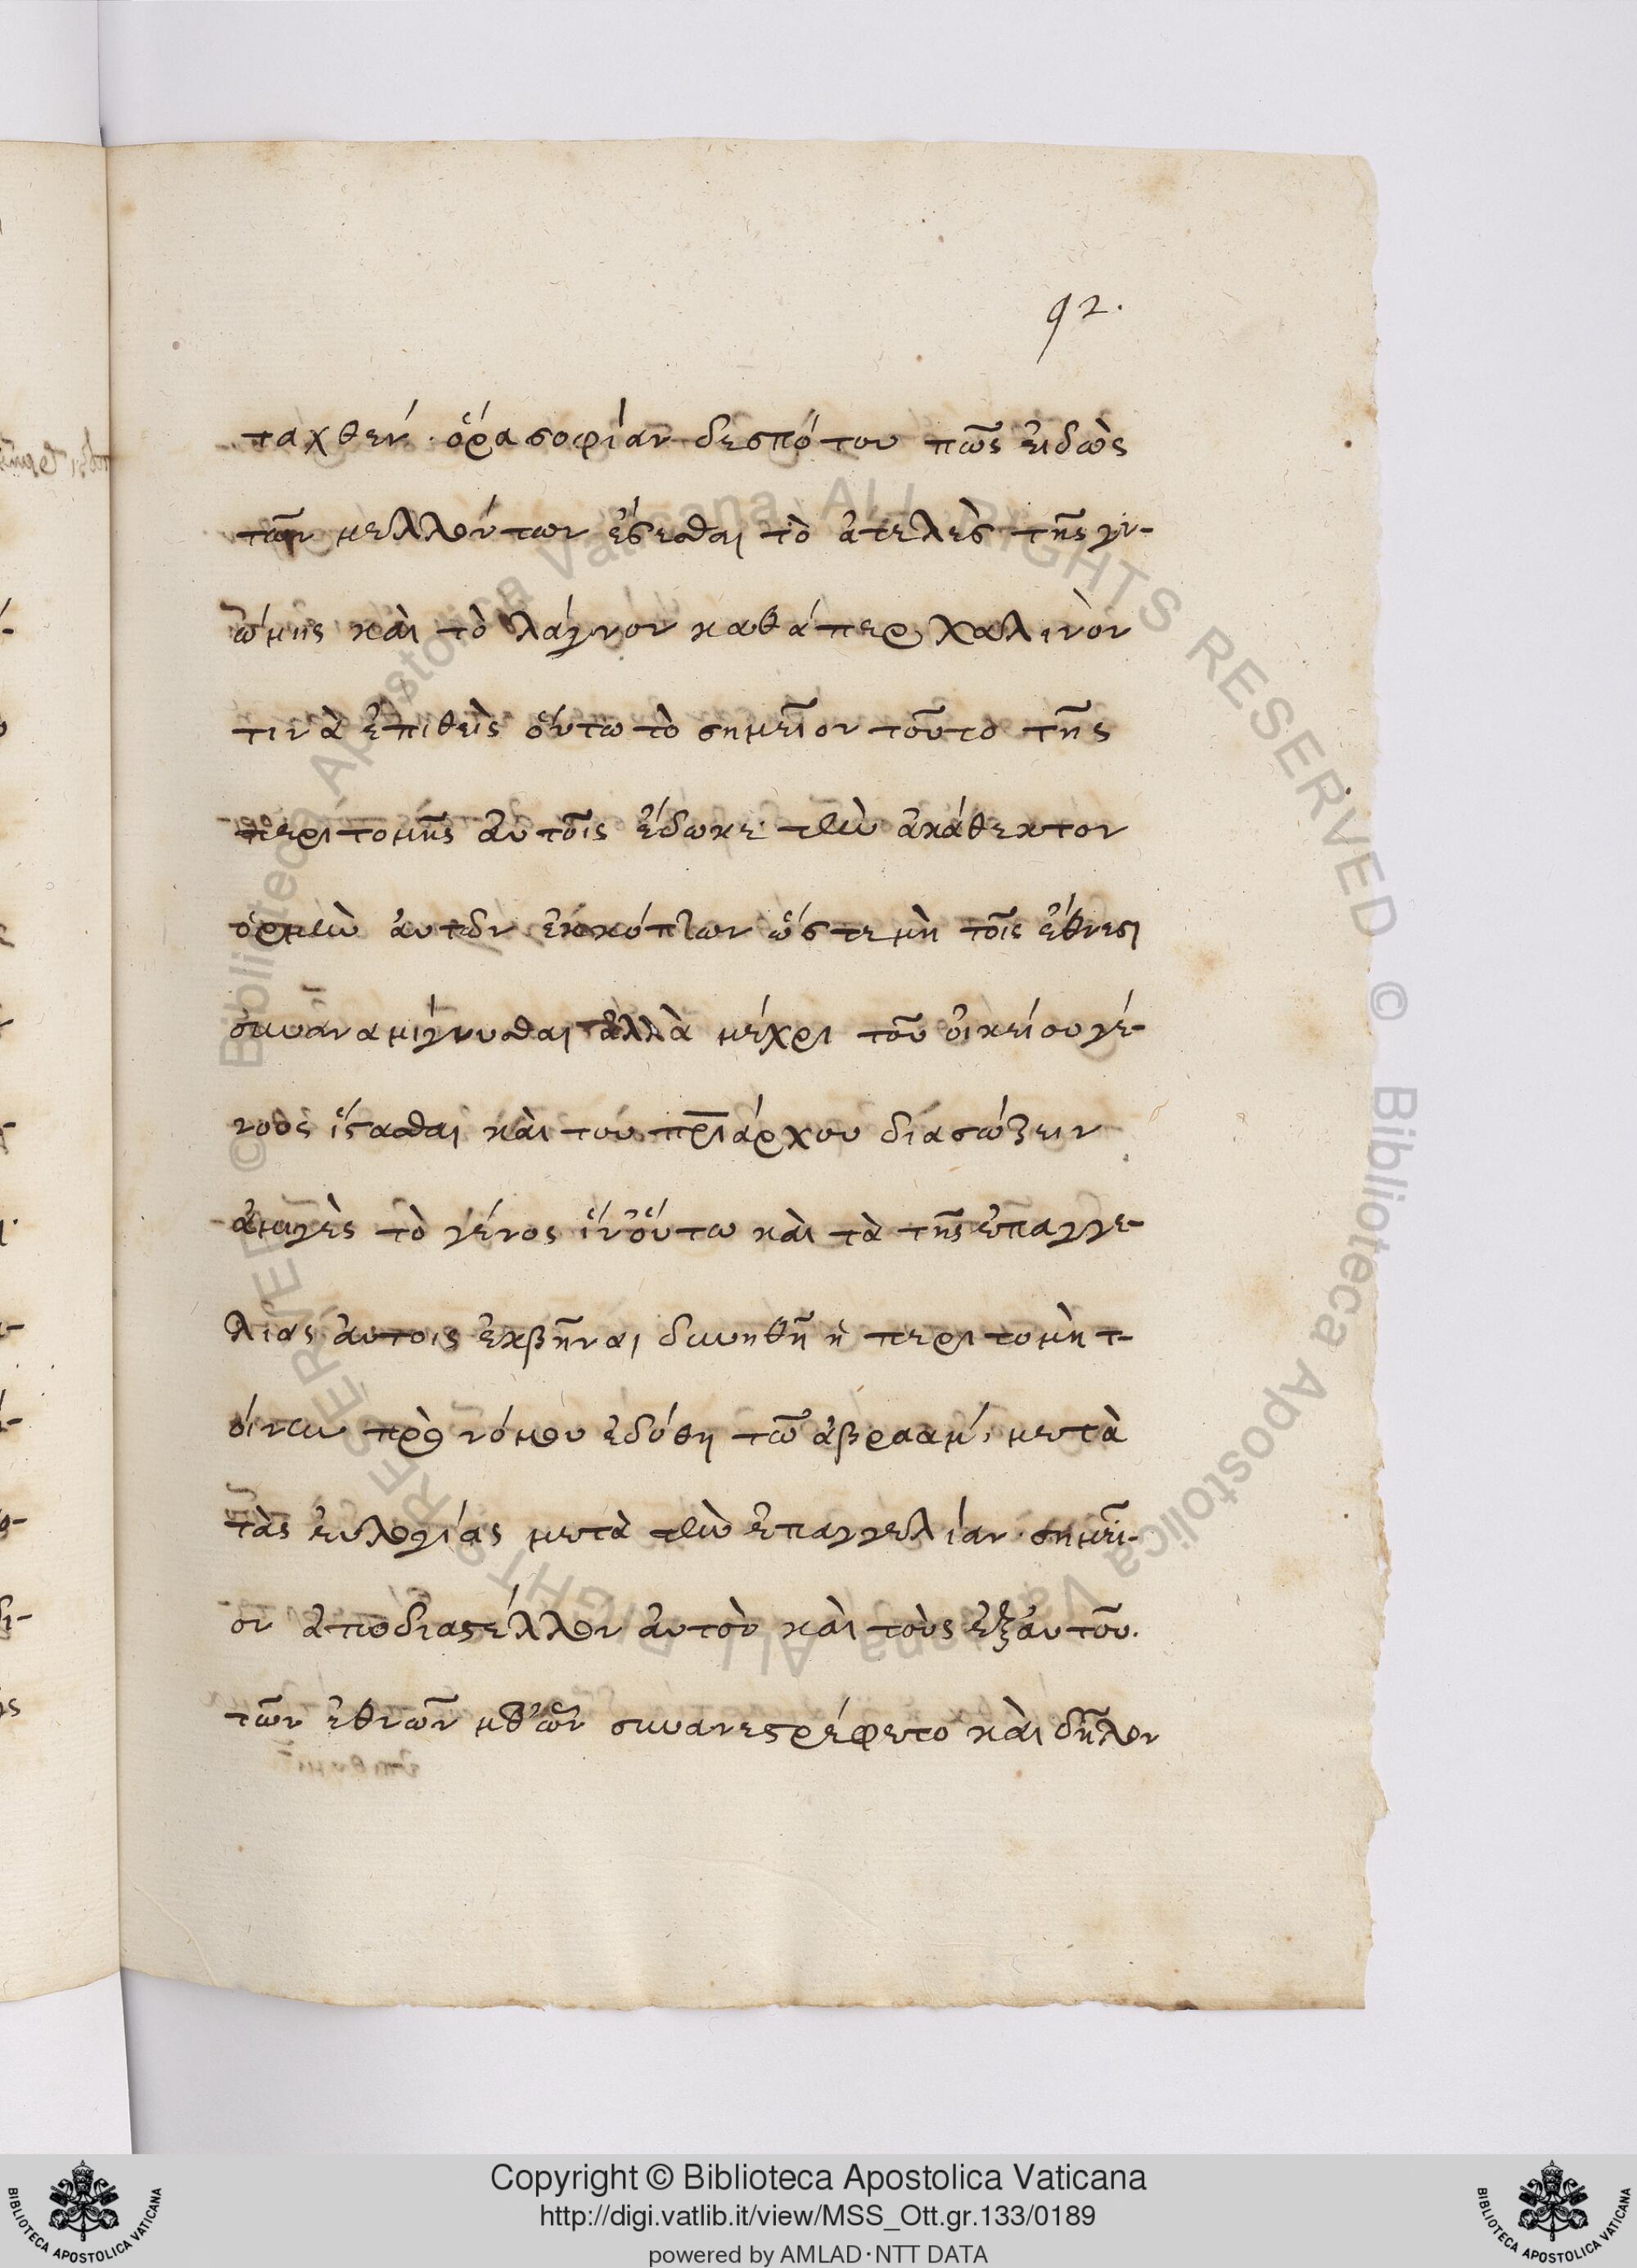 92.
ταχθέν· ὅρα σοφίαν δεσπότου πῶς εἰδὼς
τῶν μελλόντων ἔσεσθαι τὸ ἀτελὲς τῆς γν-
ώμης καὶ τὸ λάγνον καθάπερ χαλινὸν
τινὰ ἐπιθεὶς οὕτω τὸ σημεῖον τοῦτο τῆς
περιτομῆς αὐτοῖς ἔδωκε· τὴν ἀκάθεκτον
ὁρμὴν αὐτῶν ἐκκόπτων ὥστε μὴ τοῖς ἔθνεσι
συναναμίγνυσθαι ἀλλὰ μέχρι τοῦ οἰκείου γέ-
νους ἵστασθαι καὶ του πριάρχου διασώζειν
ἀμιγὲς τὸ γένος ἵν' οὕτω καὶ τὰ τῆς ἐπαγγε-
λίας αὐτοις ἐκβῆναι δυνηθῆ ἡ περιτομὴ τ-
οίνυν πρὸ νόμου ἐδόθη τῶ ἀβραάμ, μετὰ
τὰς εὐλογίας μετὰ τὴν ἐπαγγελίαν· σημεῖ-
ον ἀποδιαστέλλον αὐτὸν καὶ τοὺς ἐξ αὐτοῦ.
τῶν ἐθνῶν μεθ' ὧν συνανεστρέφετο καὶ δῆλον
Copyright © Biblioteca Apostolica Vaticana
http://digi.vatlib.it/view/MSS_Ott.gr.133/0189
powered by AMLAD·NTT DATA
BIBLIOTECA APOSTOLICA VATICANA
BIBLIOTECA APOSTOLICA VATICANA
© Biblioteca Apostolica Vaticana ALL RIGHTS RESERVED © Biblioteca Apostolica Vaticana ALL RIGHTS RESERVED